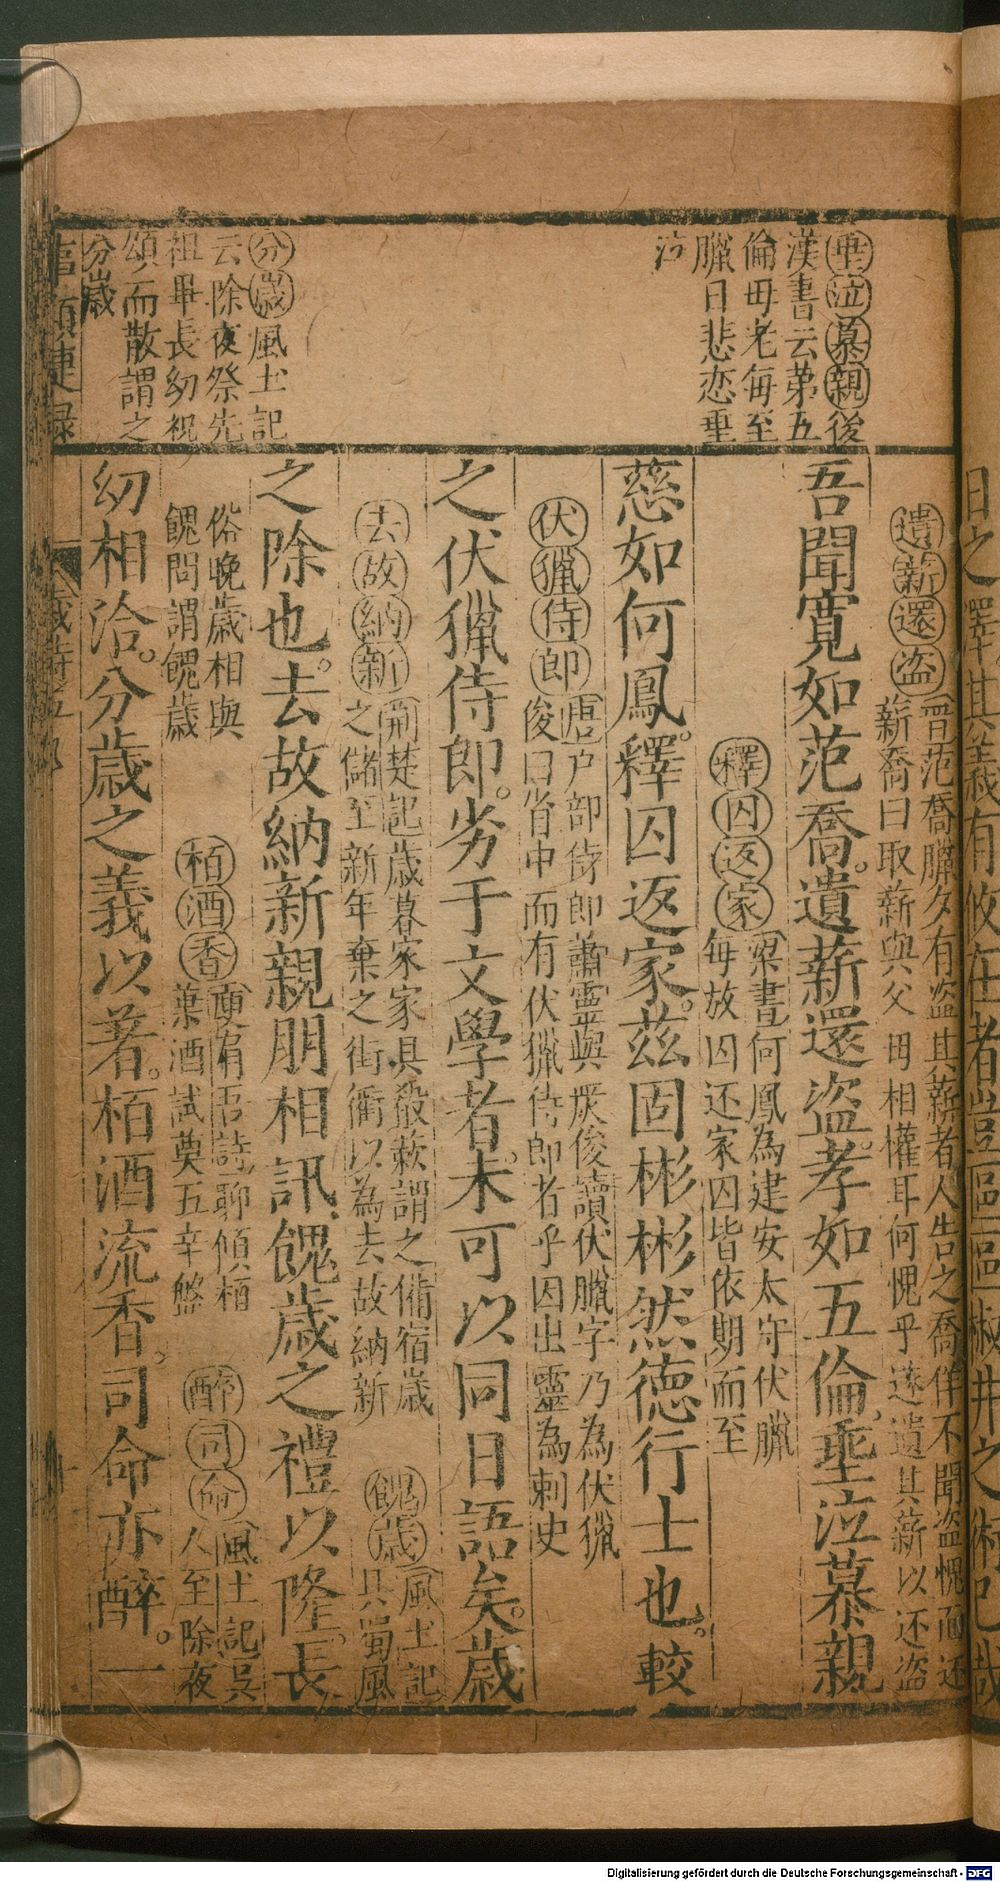 垂泣慕親後
漢書云第五
倫母老每至
臘日悲恋垂
泣
分歲風土記
云除夜祭先
祖畢長幼祝
頌而散謂之
分歲
日之澤其義有攸在者豈區區椒井之術已哉
遺薪還盜晉范喬臘夕有盜其薪者人告之喬佯不聞盜愧而还
薪喬曰取薪與父母相權耳何愧乎遂遺其薪以还盜
吾聞寬如范喬。遺薪還盜。孝如五倫垂泣慕親
釋囚返家梁書何鳳為建安太守伏臘
每放囚还家囚皆依期而至
慈如何鳳。釋囚返家。茲固彬彬然德行士也。較
伏獵侍郎唐户部侍郎蕭靈與嚴俊讀伏臘字乃為伏獵
俊曰省中而有伏獵侍郎者乎因出靈為刺史
之伏獵侍郎。劣于文學者。未可以同日語矣。歲
去故納新荊楚記歲暮家家具殽蔌謂之備宿歲
之儲至新年棄之街衢以為去故納新
餽歲風土記
具蜀風
之除也。去故納新親朋相訊。餽歲之禮以隆。長
俗晚歲相與
餽問謂餽歲
栢酒香庾肩吾詩聊傾栢
葉酒試奠五辛盤
醉司命風土記吳
人至除夜
幼相洽。分歲之義以著。栢酒流香。司命亦醉。一
事類捷錄
歲時五
Digitalisierung gefördert durch die Deutsche Forschungsgemeinschaft - DFG